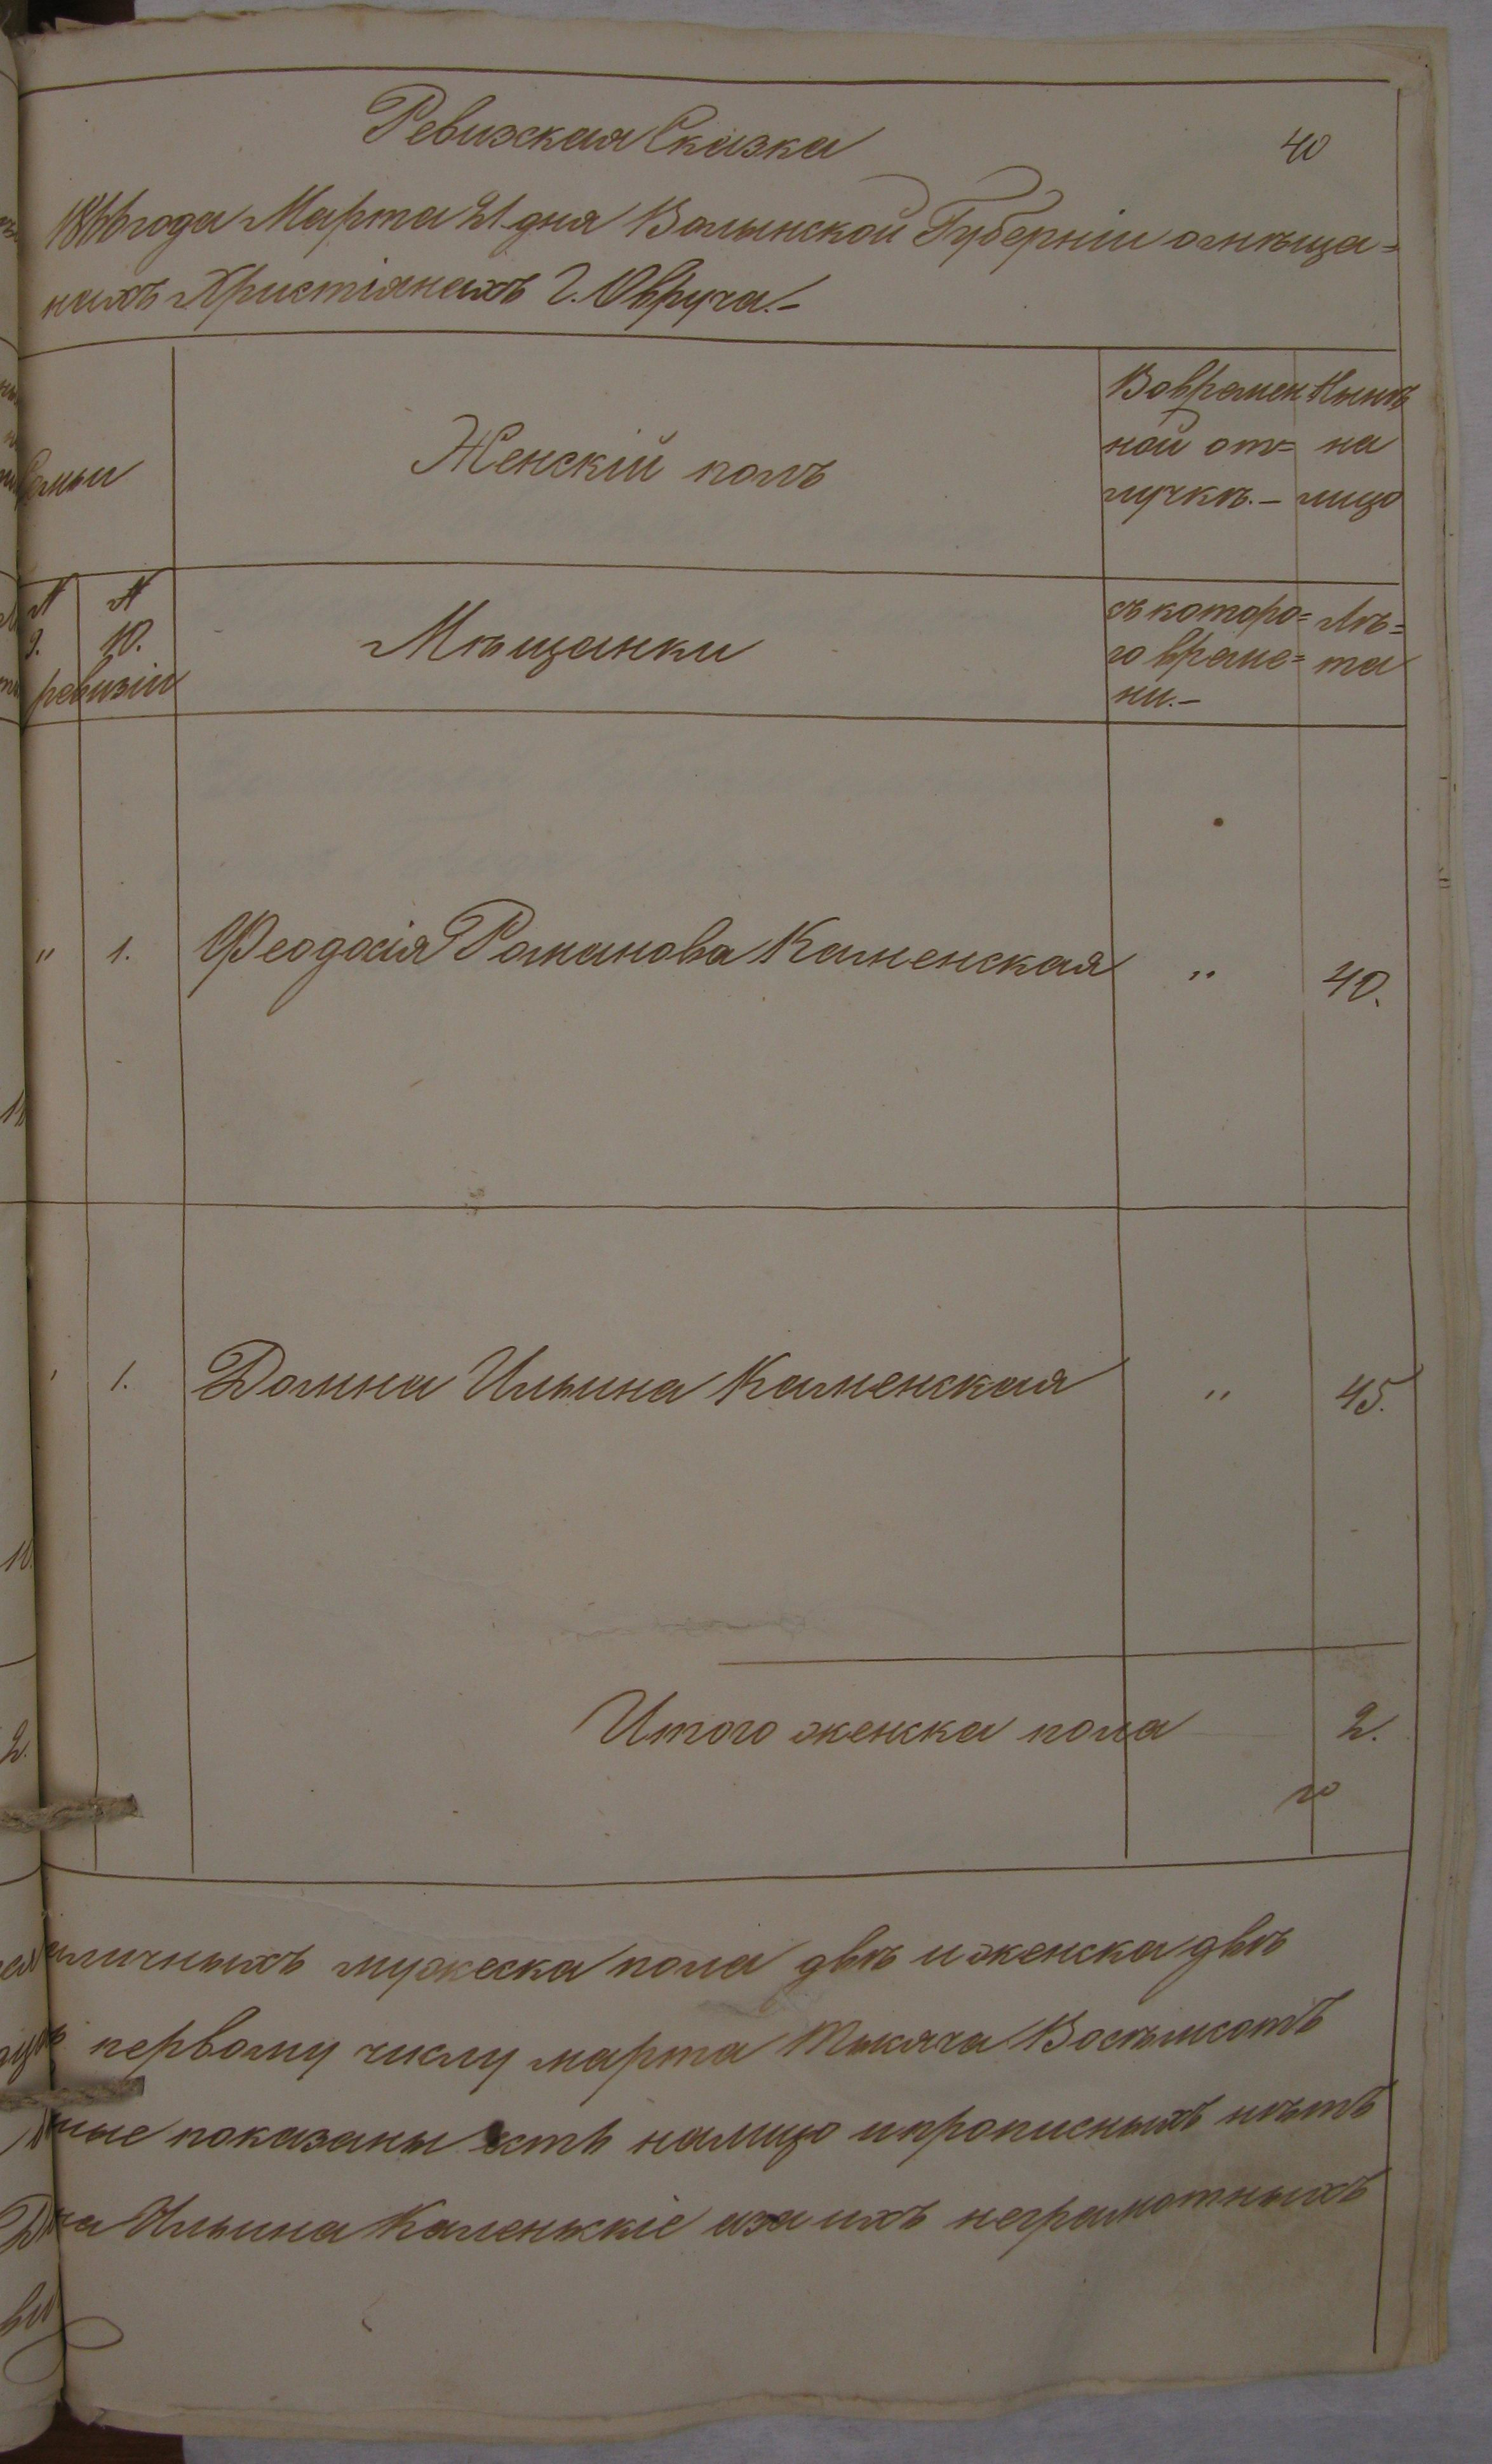 Ревизская Сказка
40
1866 года Марта 21 дня Волынской Губерніи о мѣща=
нахъ Христіянахъ г. Овруча.-
Семьи
Женскій полъ
Во времен
ной от=
лучкѣ.-
Нынѣ
на
лицо
№ №
9. 10.
ревизіи
Мѣщанки
съ которо=
го време=
ни.-
Лѣ=
та
" 1. Феодосія Романова Каменская " 40.
1. Домна Ильина Каменская " 45.
Итого женска пола 2.
наличныхъ мужеска пола двѣ и женска двѣ
первому числу марта Тысяча Восемьсотъ
показаны есть налицо и прописныхъ нѣтъ
Ильина Каменскіе а за ихъ неграмотныхъ